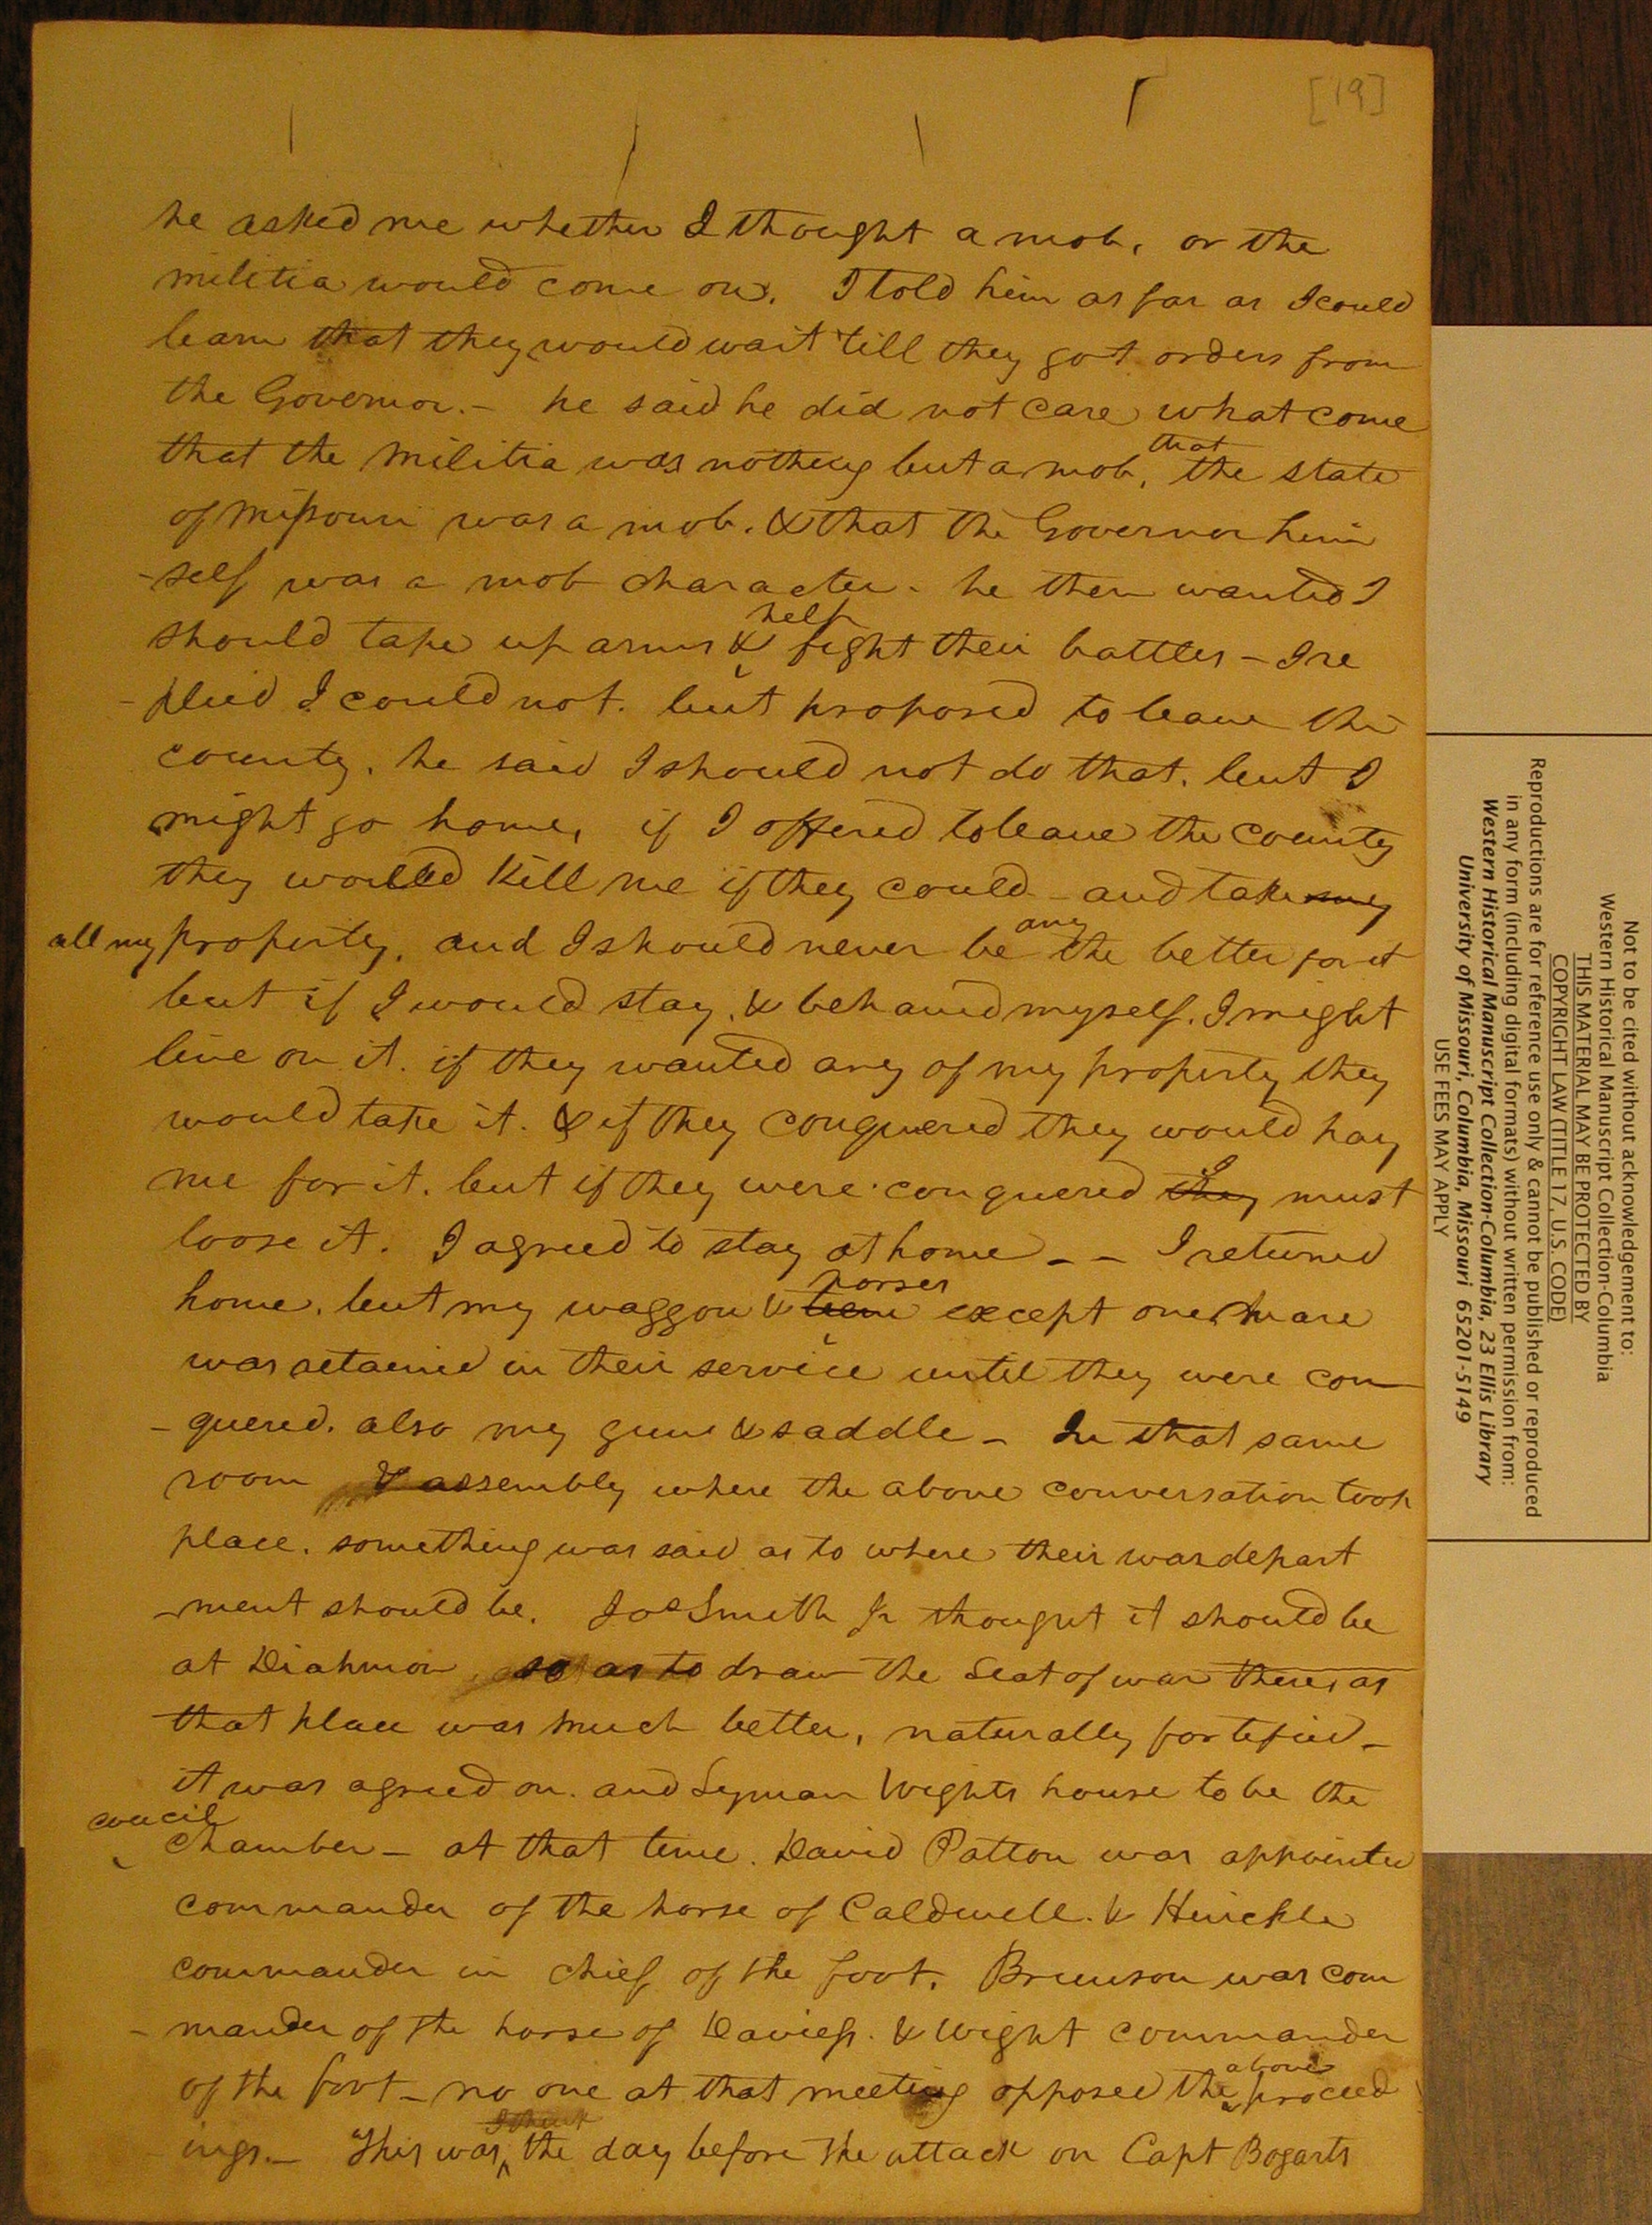 [19]
he asked me whether I thought a mob, or the
militia would come on. I told him as far as I could
learn that they would wait till they got orders from
the Governor. – he said he did not care what come
that the militia was nothing but a mob, that the state
of Missouri was a mob. & that the Governor him
-self was a mob character – he then wanted I
should take up arms & help fight their battles – I re
-plied I could not. but proposed to leave the
county. he said I should not do that. but I
might go home, if I offered to leave the county
they would kill me if they could – and take my
all my property, and I should never be any the better for it
but if I would stay, & behaved myself. I might
live on it. if they wanted any of my property they
would take it. & if they conquered they would pay
me for it. but if they were conquered they I must
loose it. I agreed to stay at home – – I returned
home. but my waggon & horses except one mare
was retained in their service until they were con
-quered. also my guns & saddle – In that same
room & assembly where the above conversation took
place. something was said as to where their war depart
-ment should be. Jos Smith Jr thought it should be
at Diahmon so as to draw the seat of war there, as
that place was much better, naturally fortified –
it was agreed on. and Lyman Wights house to be the
council chamber – at that time. David Patton was appointed
commander of the horse of Caldwell. & Hinckle
commander in chief of the foot. Brunson was com
-mander of the horse of Daviess. & Wight commander
of the foot – no one at that meeting opposed the above proceed
ings. – This was I think the day before the attack on Capt Bogarts
Not to be cited without acknowledgement to:
Western Historical Manuscript Collection-Columbia
THIS MATERIAL MAY BE PROTECTED BY
COPYRIGHT LAW (TITLE 17, U.S. CODE)
Reproductions are for reference use only & cannot be published or reproduced
in any form (including digital formats) without written permission from:
Western Historical Manuscript Collection-Columbia, 23 Ellis Library
University of Missouri, Columbia, Missouri 65201-5149
USE FEES MAY APPLY